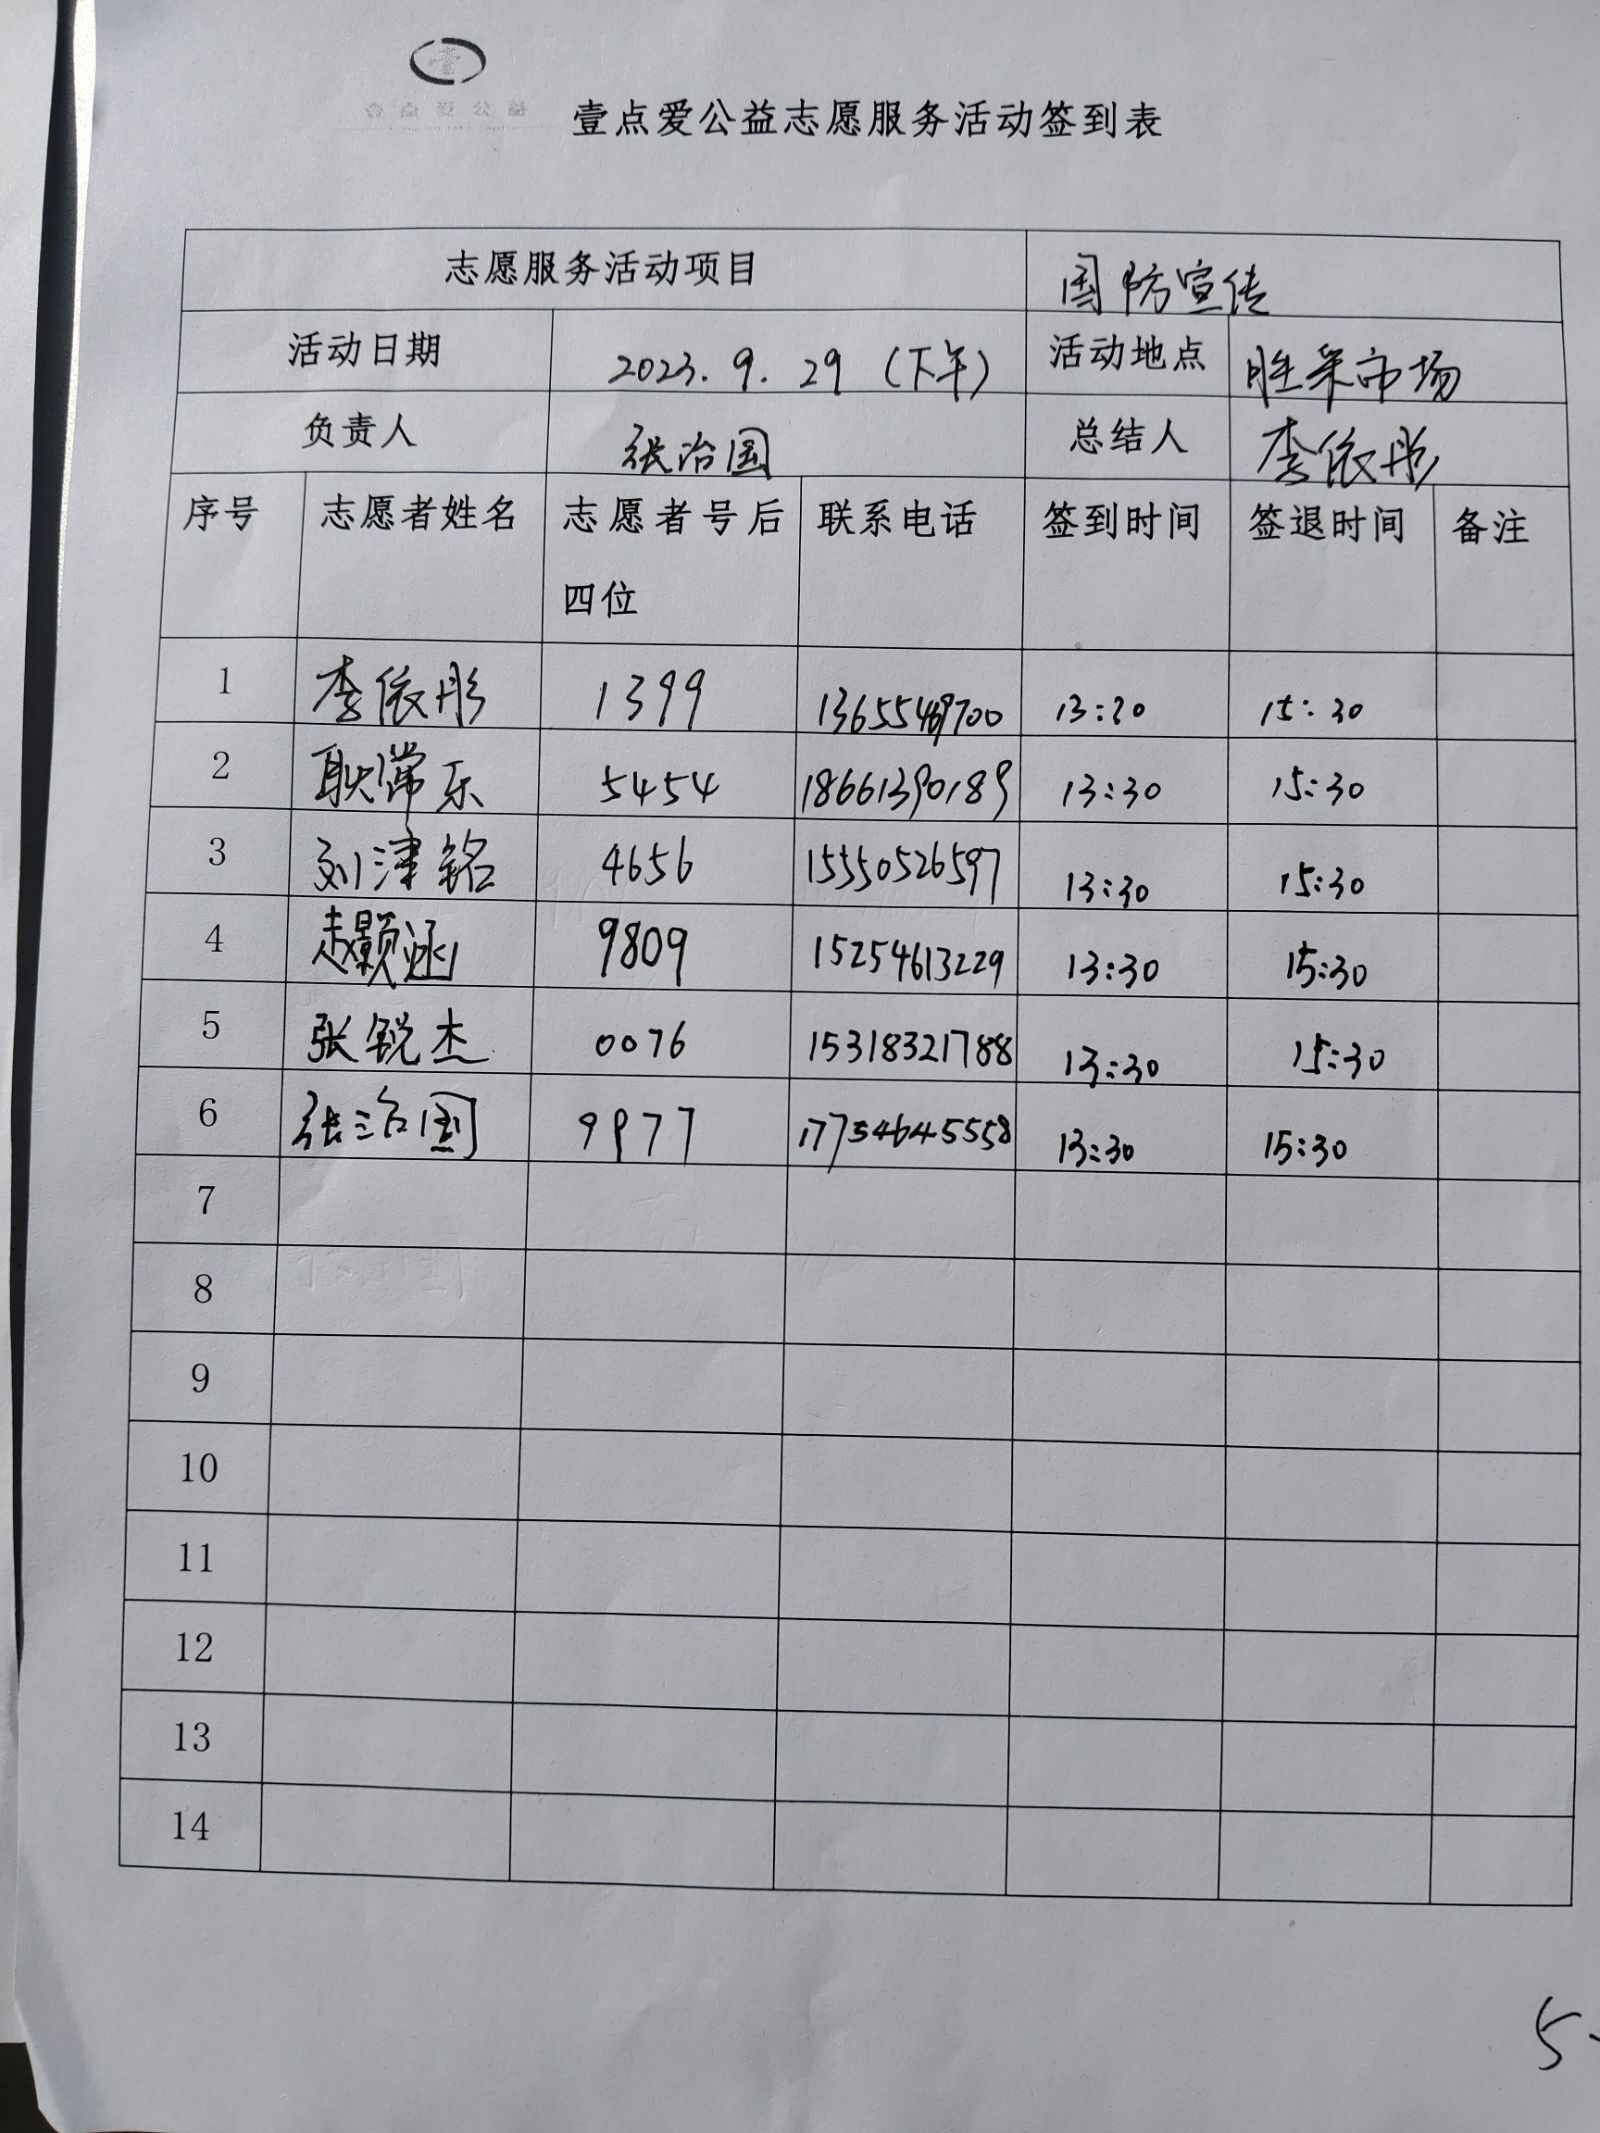 壹点爱公益志愿服务活动签到表
志愿服务活动项目 国防宣传
活动日期 2023.9.29(下午) 活动地点 胜采市场
负责人 张治国 总结人 李依彤
序号 志愿者姓名 志愿者号后 联系电话 签到时间 签退时间 备注
四位
1 李依彤 1399 13655469700 13:20 15:30
2 耿常乐 5454 18661390189 13:30 15:30
3 刘津铭 4656 15550526597 13:30 15:30
4 赵颢涵 9809 15254613229 13:30 15:30
5 张锐杰 0076 15318321788 13:30 15:30
6 张治国 9977 17754645558 13:30 15:30
7
8
9
10
11
12
13
14